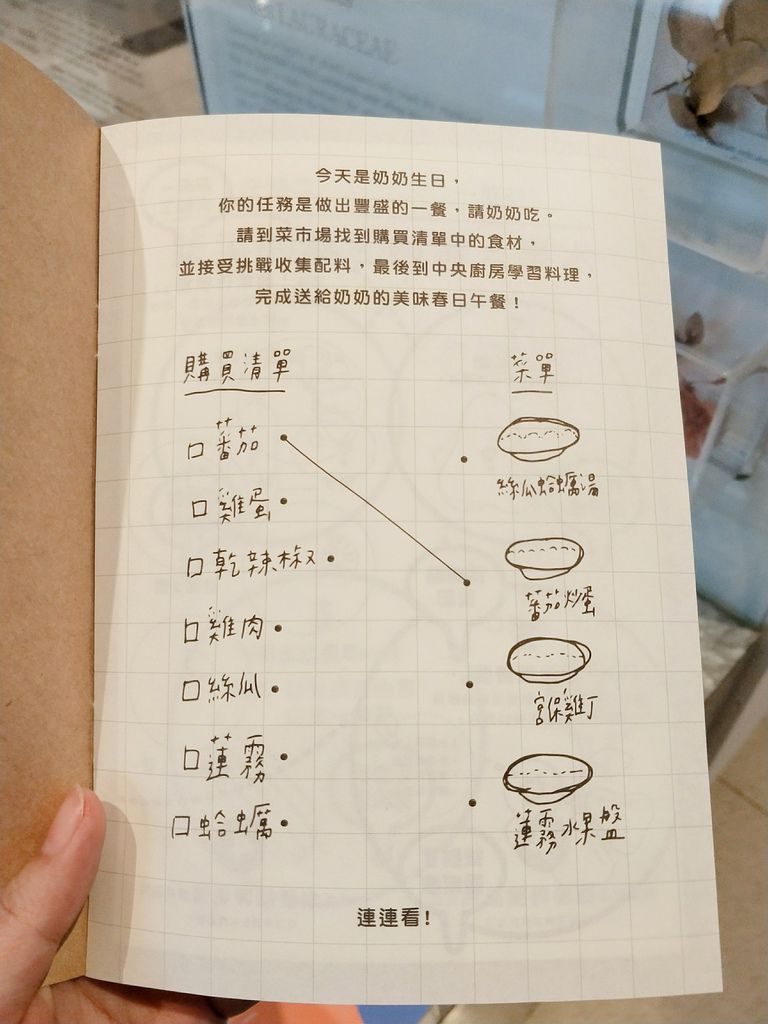 今天是奶奶生日，
你的任務是做出豐盛的一餐，請奶奶吃。
請到菜市場找到購買清單中的食材，
並接受挑戰收集配料，最後到中央廚房學習料理，
完成送給奶奶的美味春日午餐！
購買清單
蕃茄
雞蛋
乾辣椒
雞肉
絲瓜
蓮霧
蛤蠣
菜單
絲瓜蛤蠣湯
蕃茄炒蛋
宮保雞丁
蓮霧水果盤
連連看！